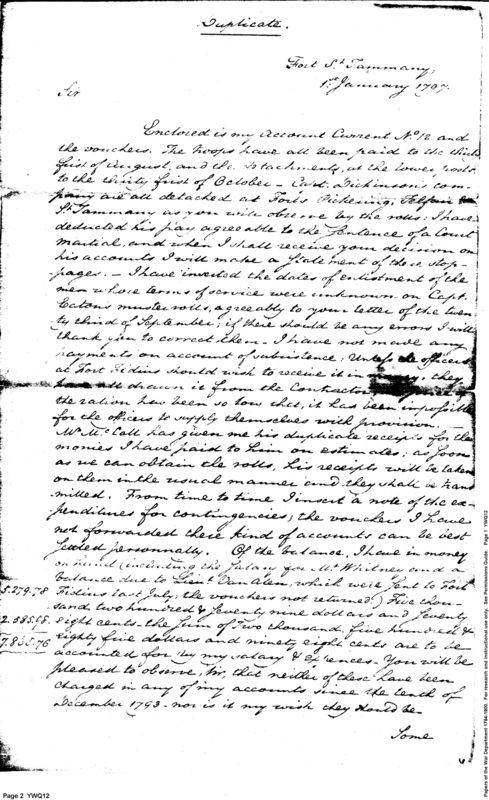 Duplicate.
Fort St. Tammany,
1st January 1797.
Sir
Enclosed is my Account Current No. 12 and
the vouchers. The troops have all been paid to the thirty
first of August, and the detachments, at the lower posts
to the thirty first of October – Capt. Dickinson's com-
pany are all detached at Forts Pickering,
St. Tammany as you will observe by the rolls: I have
deducted his pay agreeable to the sentence of a Court
Martial, and when I shall receive your decision on
his accounts I will make a statement of these stop-
pages. – I have inserted the dates of enlistment of the
men whose terms of service were unknown on Capt.
Eaton's muster rolls, agreeably to your letter of the twen-
ty third of September; if there should be any errors I will
thank you to correct them. I have not made any
payments on account of subsistence; Unless the officers
at Fort Fidius should wish to receive it in they
have all drawn it from the Contractor
the ration has been so low that, it has been impossible
for the officers to supply themselves with provision –
Mr. McCall has given me his duplicate receipts for the
monies I have paid to him on estimates; as soon
as we can obtain the rolls, his receipts will be taken
on them in the usual manner and they shall be trans
mitted. From time to time I insert a note of the ex-
penditures for contingencies; the vouchers I have
not forwarded these kind of accounts can be best
settled personnally. Of the balance, I have in money
on hand (including the salary for Mr. Whitney and a
balance due to Lieut Van Alen, which were sent to Fort
5.279.78 Fidius last July; the vouchers not returned) Five thou-
sand two hundred & seventy nine dollars and seventy
2.585.98. eight cents – the sum of Two thousand, five hundred &
7.865.76 eighty five dollars and ninety eight cents are to be
accounted for by my salary & expences – You will be
pleased to observe, Sir, that neither of these have been
charged in any of my accounts since the tenth of
December 1793 – nor is it my wish they should be –
Some
Page 2 YWQ12
Papers of the War Department 1784-1800. For research and instructional use only. See Permissions Guide. Page 1 YWQ12